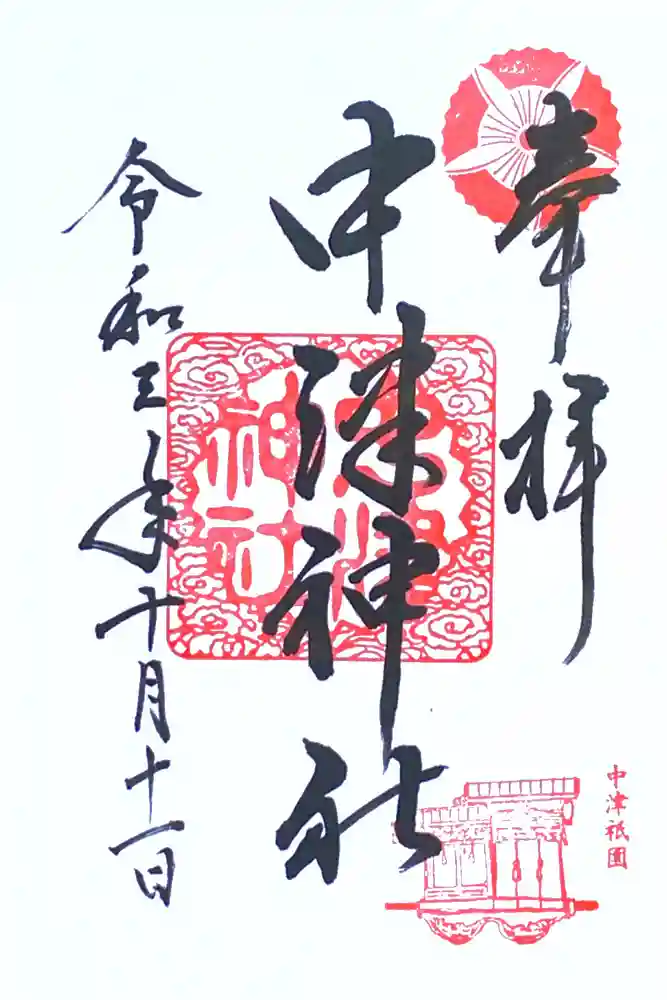 奉拝
中津神社
中津神社
令和三年十月十一日
中津祇園